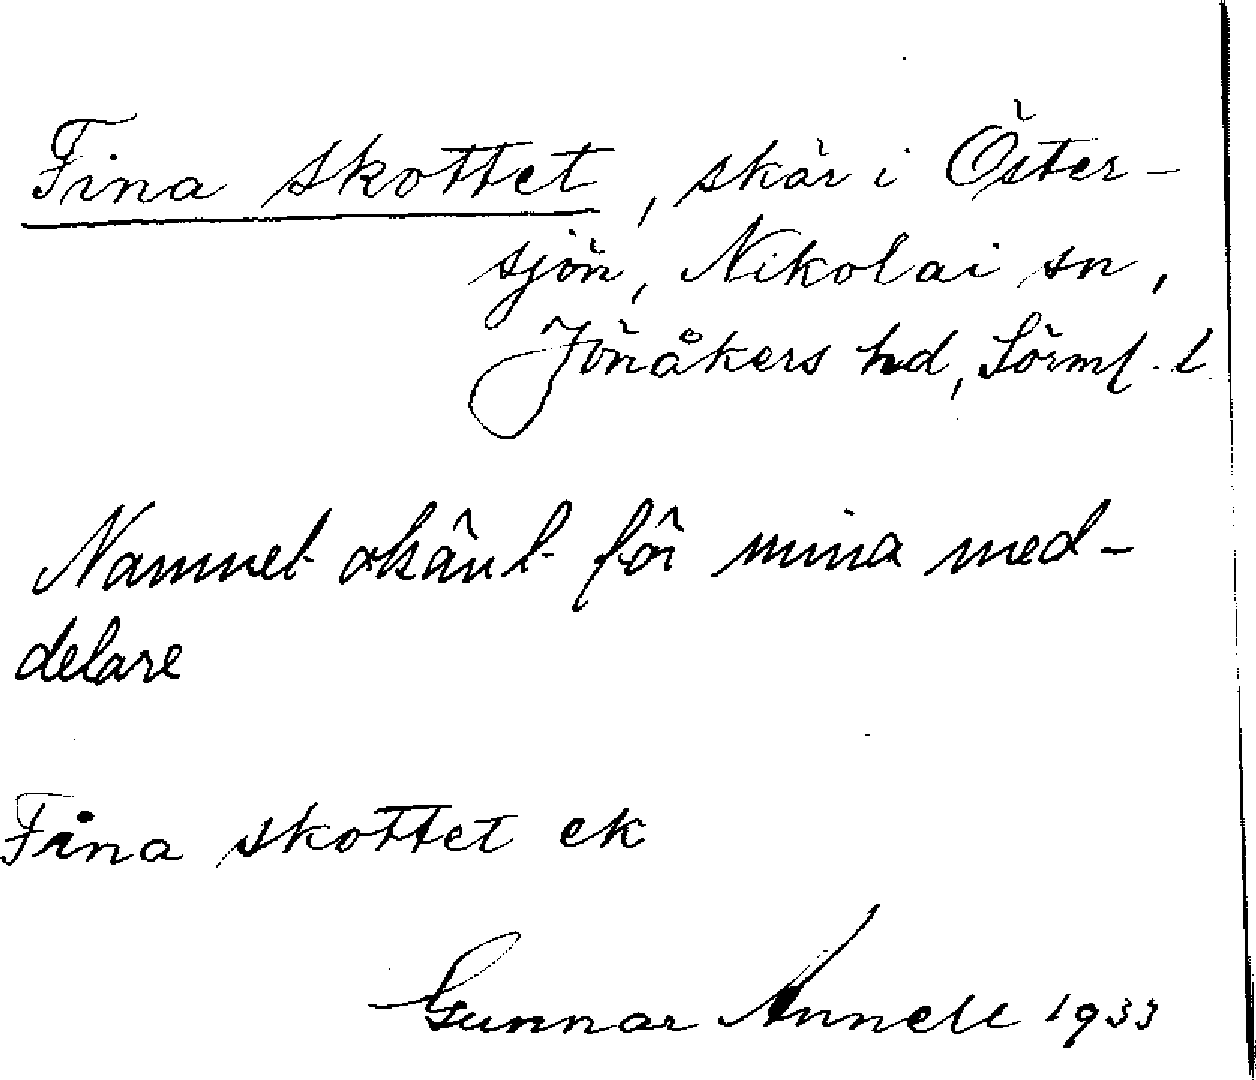 Fina skottet, skär i Öster-
sjön, Nikolai sn,
Jönåkers hd, Sörml. l
Namnet okänt för mina med-
delare
Fina skottet ek
Gunnar Annell 1933